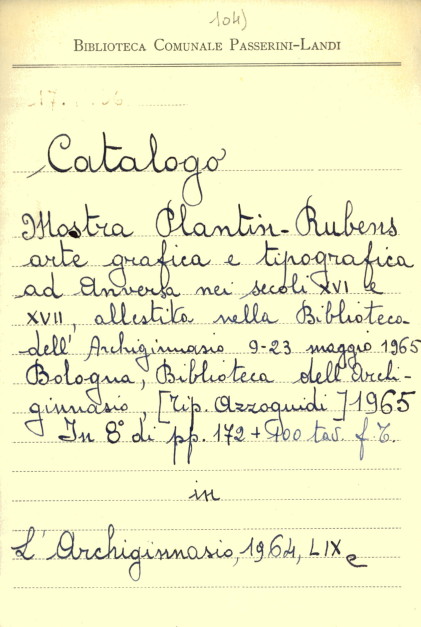 104)
BIBLIOTECA COMUNALE PASSERINI-LANDI
Catalogo
Mostra Plantin-Rubens
arte grafica e tipografica
ad Anversa nei secoli XVI e
XVII, allestita nella Biblioteca
dell' Archiginnasio 9-23 maggio 1965
Bologna, Biblioteca dell'Archi-
ginnasio, [Tip. Azzoguidi] 1965
In 8° di pp. 172 + 400 tav. f. t.
in
L'Archiginnasio, 1964, LIX